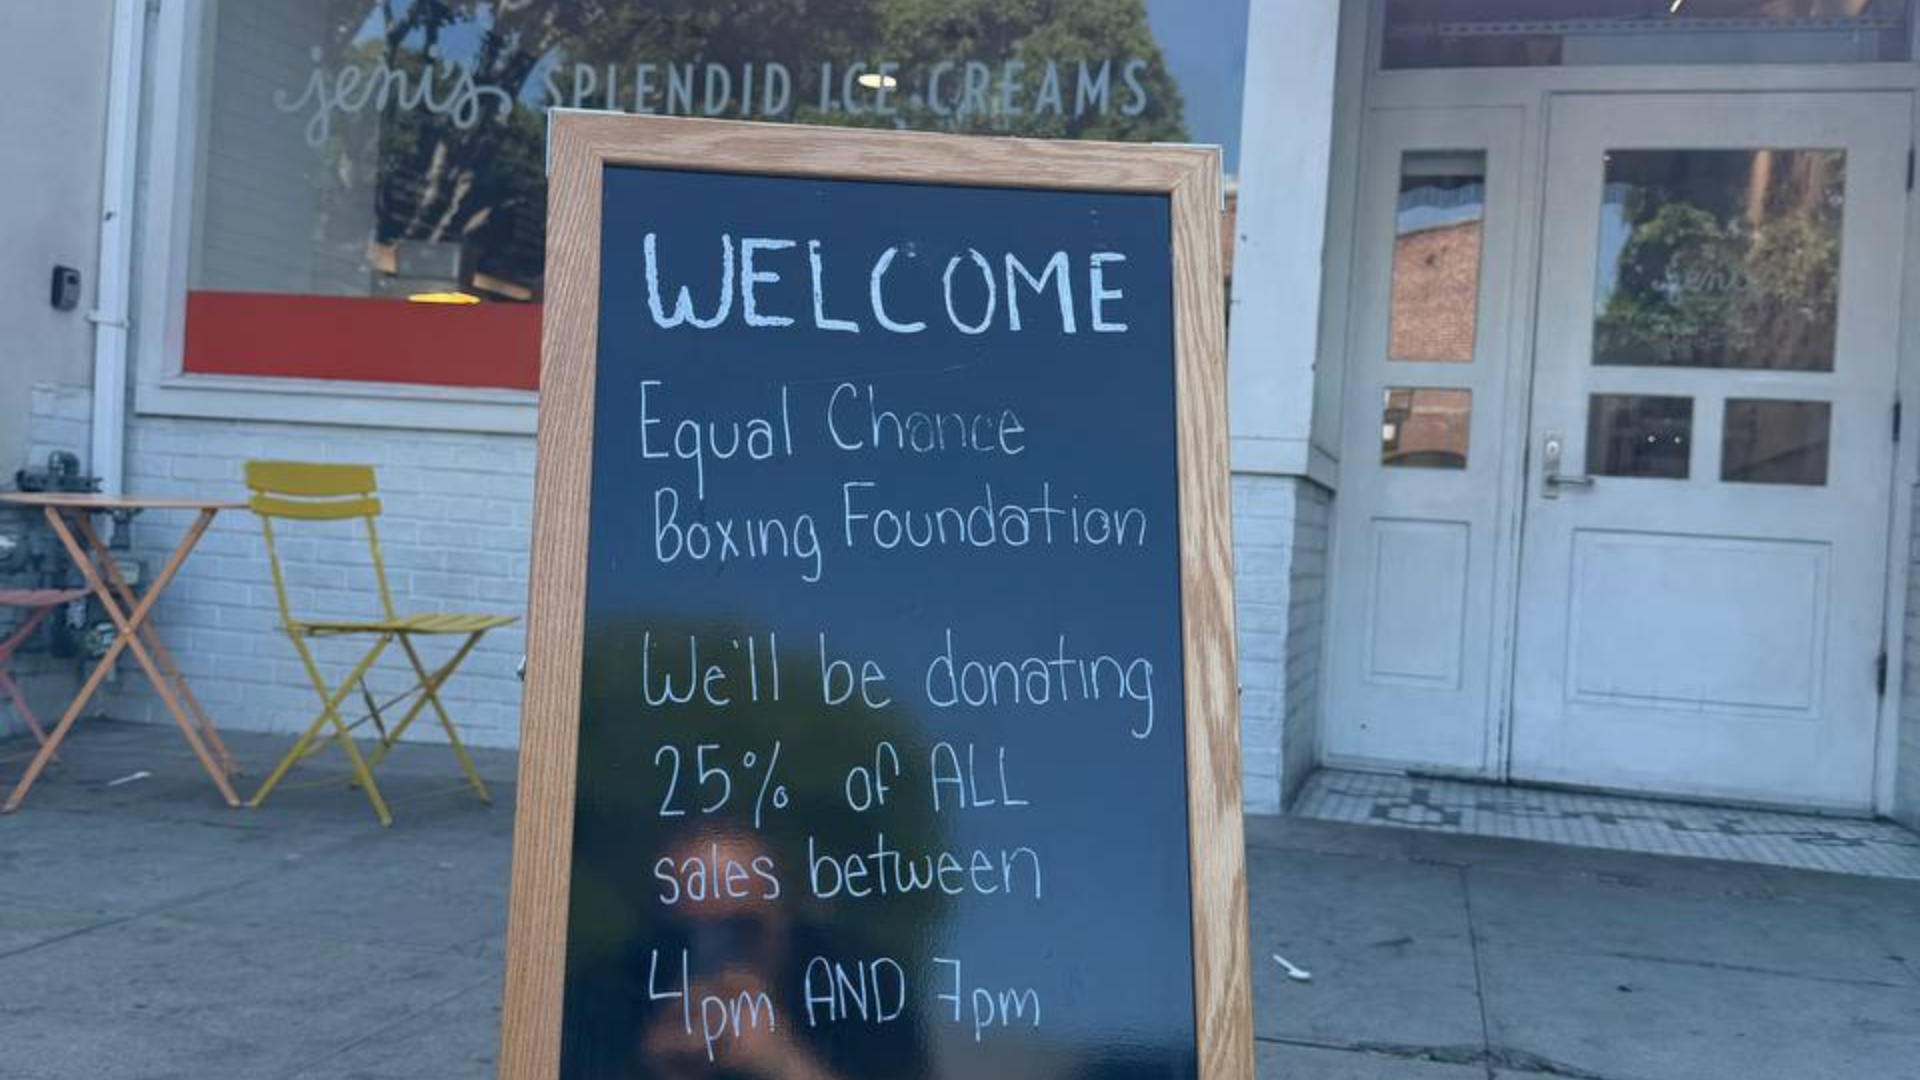 jeni's SPLENDID ICE CREAMS
WELCOME
Equal Chance
Boxing Foundation
We'll be donating
25% of ALL
sales between
4pm AND 7pm
jeni's